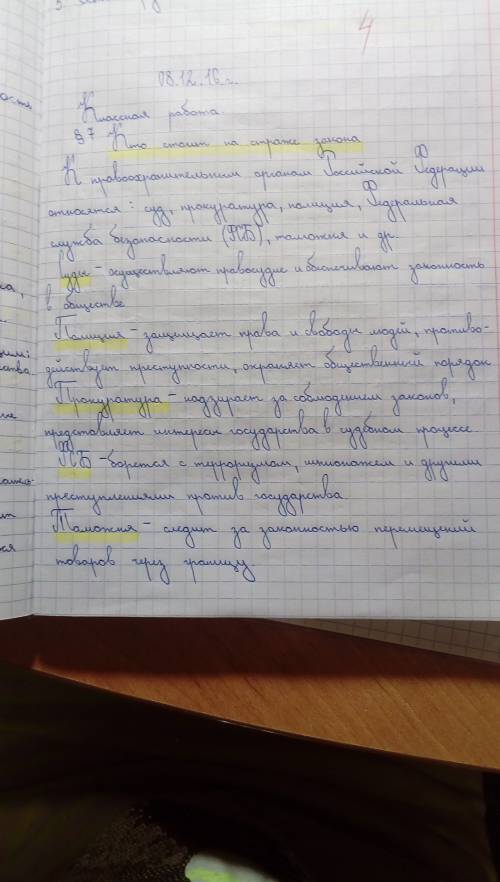 4
08.12.16 г.
Классная работа
§ 7 Кто стоит на страже закона
К правоохранительным органам Российской Федерации
относятся: суд, прокуратура, полиция, Федеральная
служба безопасности (ФСБ), таможня и др.
Суды - осуществляют правосудие и обеспечивают законность
в обществе
Полиция - защищает права и свободы людей, противо-
действует преступности, охраняет общественный порядок
Прокуратура - надзирает за соблюдением законов,
представляет интересы государства в судбном процессе
ФСБ - борется с терроризмом, шпионажем и другими
преступлениями против государства
Таможня - следит за законностью перемещений
товаров через границу.